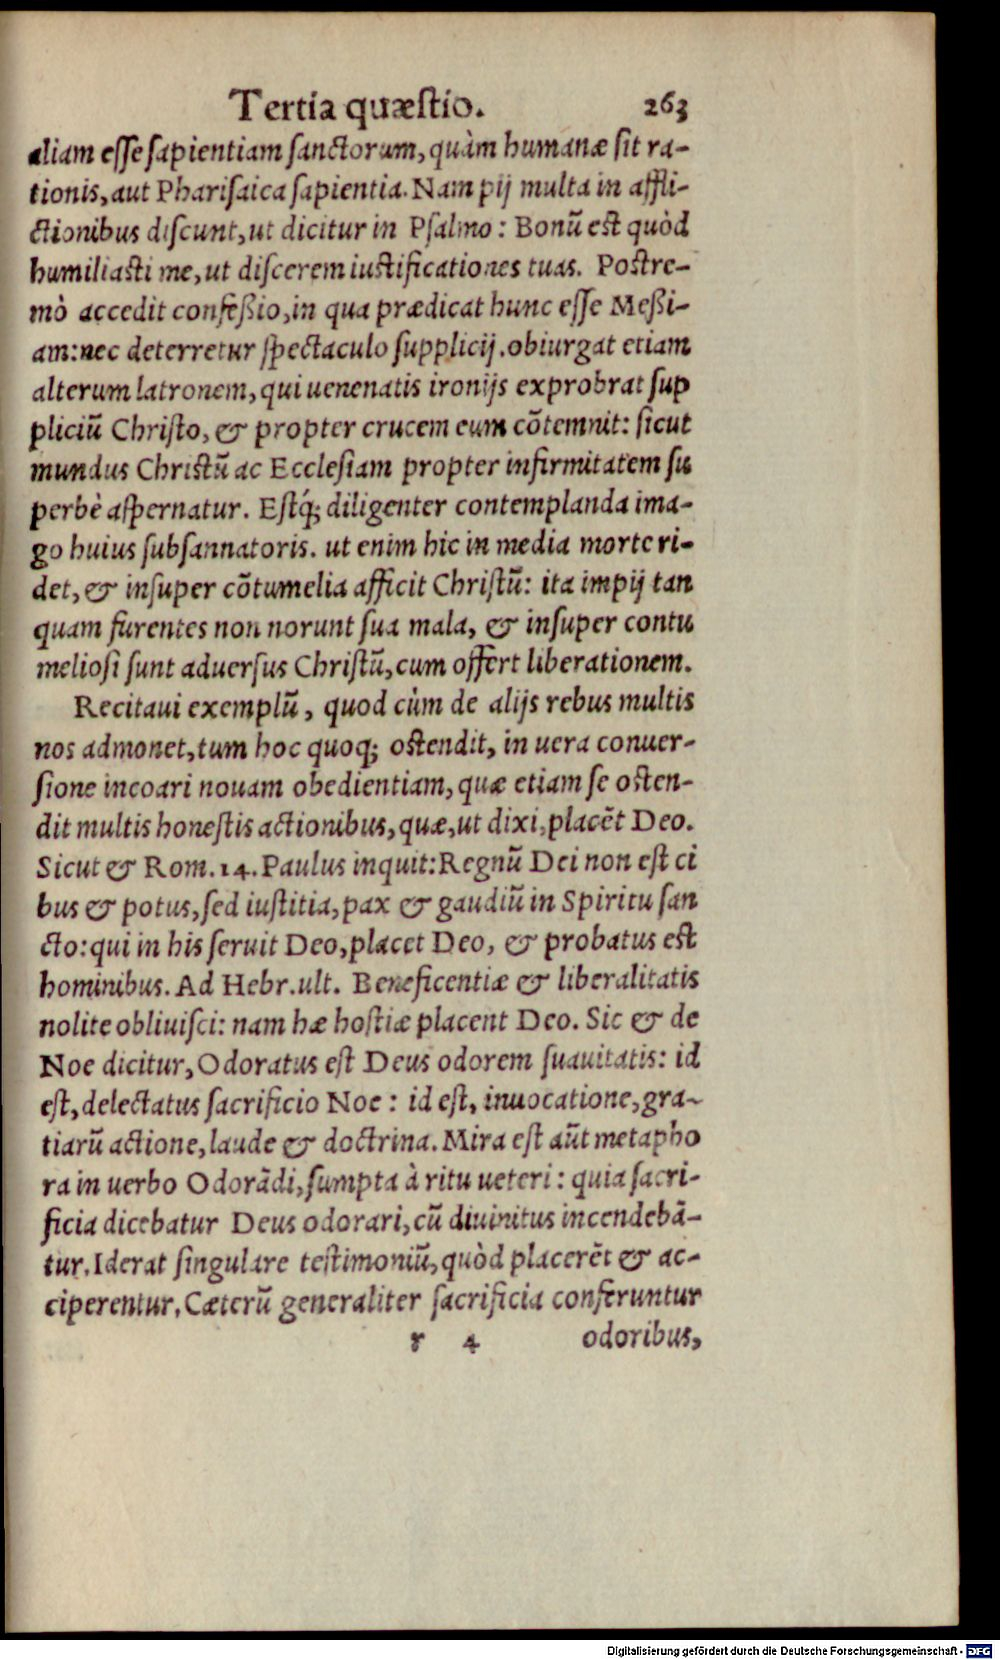 Tertia quæstio. 263
aliam esse sapientiam sanctorum, quàm humanæ sit ra-
tionis, aut Pharisaica sapientia. Nam pij multa in affli-
ctionibus discunt, ut dicitur in Psalmo: Bonũ est quòd
humiliasti me, ut discerem iustificationes tuas. Postre-
mò accedit confeßio, in qua prædicat hunc esse Meßi-
am: nec deterretur spectaculo supplicij. obiurgat etiam
alterum latronem, qui uenenatis ironijs exprobrat sup
pliciũ Christo, & propter crucem eum cõtemnit: sicut
mundus Christũ ac Ecclesiam propter infirmitatem su
perbè aspernatur. Estq́; diligenter contemplanda ima-
go huius subsannatoris. ut enim hic in media morte ri-
det, & insuper cõtumelia afficit Christũ: ita impij tan
quam furentes non norunt sua mala, & insuper contu
meliosi sunt aduersus Christũ, cum offert liberationem.
Recitaui exemplũ, quod cùm de alijs rebus multis
nos admonet, tum hoc quoq; ostendit, in uera conuer-
sione incoari nouam obedientiam, quæ etiam se osten-
dit multis honestis actionibus, quæ, ut dixi, placẽt Deo.
Sicut & Rom. 14. Paulus inquit: Regnũ Dei non est ci
bus & potus, sed iustitia, pax & gaudiũ in Spiritu san
cto: qui in his seruit Deo, placet Deo, & probatus est
hominibus. Ad Hebr. ult. Beneficentiæ & liberalitatis
nolite obliuisci: nam hæ hostiæ placent Deo. Sic & de
Noe dicitur, Odoratus est Deus odorem suauitatis: id
est, delectatus sacrificio Noe: id est, inuocatione, gra-
tiarũ actione, laude & doctrina. Mira est aũt metapho
ra in uerbo Odorãdi, sumpta à ritu ueteri: quia sacri-
ficia dicebatur Deus odorari, cũ diuinitus incendebã-
tur. Id erat singulare testimoniũ, quòd placerẽt & ac-
ciperentur. Cæterũ generaliter sacrificia conferuntur
r 4 odoribus,
Digitalisierung gefördert durch die Deutsche Forschungsgemeinschaft - DFG